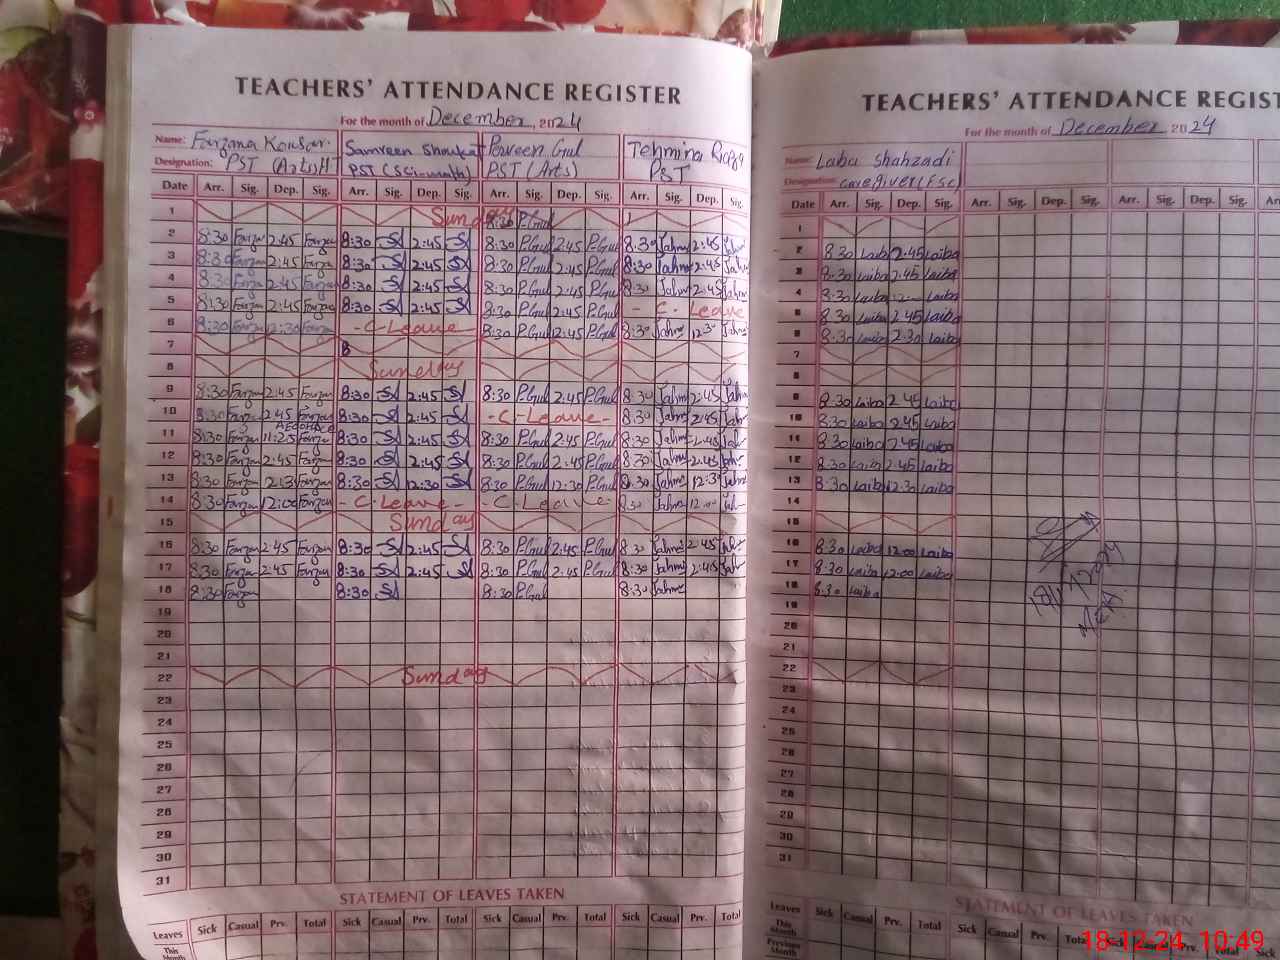 TEACHERS' ATTENDANCE REGISTER
For the month of December, 2024
Name: Farzana Kousar. Samreen Shoukat Perveen Gul Tehmina Riaz
Designation: PST (Arts) HT PST (Sci-math) PST (Arts) PST
Date Arr. Sig. Dep. Sig. Arr. Sig. Dep. Sig. Arr. Sig. Dep. Sig. Arr. Sig. Dep. Sig.
1 Sunday 8:30 P.Gul
2 8:30 Farzan 2:45 Farzan 8:30 2:45 8:30 P.Gul 2:45 P.Gul 8:30 Tahmi 2:45 Tahmi
3 8:30 Farzan 2:45 Farzan 8:30 2:45 8:30 P.Gul 2:45 P.Gul 8:30 Tahmi 2:45 Tahmi
4 8:30 Farzan 2:45 Farzan 8:30 2:45 8:30 P.Gul 2:45 P.Gul 8:30 Tahmi 2:45 Tahmi
5 8:30 Farzan 2:45 Farzan 8:30 2:45 8:30 P.Gul 2:45 P.Gul - C - Leave
6 8:30 Farzan 12:30 Farzan - C - Leave - 8:30 P.Gul 12:45 P.Gul 8:30 Tahmi 12:30 Tahmi
7 8
8 Sunday
9 8:30 Farzan 2:45 Farzan 8:30 2:45 8:30 P.Gul 2:45 P.Gul 8:30 Tahmi 2:45 Tahmi
10 8:30 Farzan 2:45 Farzan 8:30 2:45 - C - Leave - 8:30 Tahmi 2:45 Tah
11 8:30 Farzan 11:25 Farzan 8:30 2:45 8:30 P.Gul 2:45 P.Gul 8:30 Tahmi 2:45 Tah
12 8:30 Farzan 2:45 Farzan 8:30 2:45 8:30 P.Gul 2:45 P.Gul 8:30 Tahmi 2:45 Tah
13 8:30 Farzan 12:30 Farzan 8:30 12:30 8:30 P.Gul 12:30 P.Gul 8:30 Tahmi 12:30 Tahmi
14 8:30 Farzan 12:00 Farzan - C - Leave - - C - Leave - 8:30 Tahmi 12:00 Tah
15 Sunday
16 8:30 Farzan 2:45 Farzan 8:30 2:45 8:30 P.Gul 2:45 P.Gul 8:30 Tahmi 2:45 Tah
17 8:30 Farzan 2:45 Farzan 8:30 2:45 8:30 P.Gul 2:45 P.Gul 8:30 Tahmi 2:45 Tah
18 8:30 Farzan 8:30 8:30 P.Gul 8:30 Tahmi
19
20
21
22 Sunday
23
24
25
26
27
28
29
30
31
STATEMENT OF LEAVES TAKEN
Leaves Sick Casual Prv. Total Sick Casual Prv. Total Sick Casual Prv. Total Sick Casual Prv. Total
This Month
TEACHERS' ATTENDANCE REGIST
For the month of December, 2024
Name: Laiba Shahzadi
Designation: caregiver (Fsc)
Date Arr. Sig. Dep. Sig. Arr. Sig. Dep. Sig. Arr. Sig. Dep. Sig.
1
2 8:30 Laiba 2:45 Laiba
3 8:30 Laiba 2:45 Laiba
4 8:30 Laiba Laiba
5 8:30 Laiba 2:45 Laiba
6 8:30 Laiba 2:30 Laiba
7
8
9 8:30 Laiba 2:45 Laiba
10 8:30 Laiba 2:45 Laiba
11 8:30 Laiba 2:45 Laiba
12 8:30 Laiba 2:45 Laiba
13 8:30 Laiba 12:30 Laiba
14
15
16 8:30 Laiba 12:00 Laiba
17 8:30 Laiba 12:00 Laiba
18 8:30 Laiba
19
20
21
22
23
24
25
26
27
28
29
30
31
18/12/2024
STATEMENT OF LEAVES TAKEN
Leaves Sick Casual Prv. Total Sick Casual Prv. Total Sick Casual Prv. Total
This Month
Previous Month
18-12-24 10:49